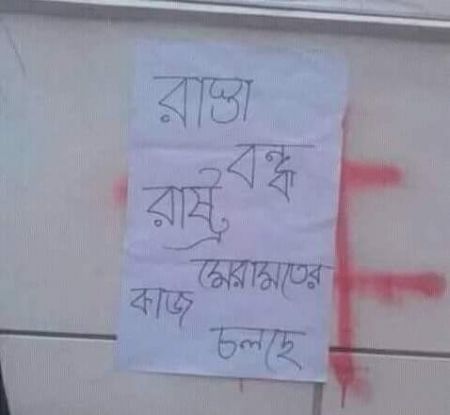 রাস্তা
বন্ধ
রাষ্ট্র
মেরামতের
কাজ
চলছে